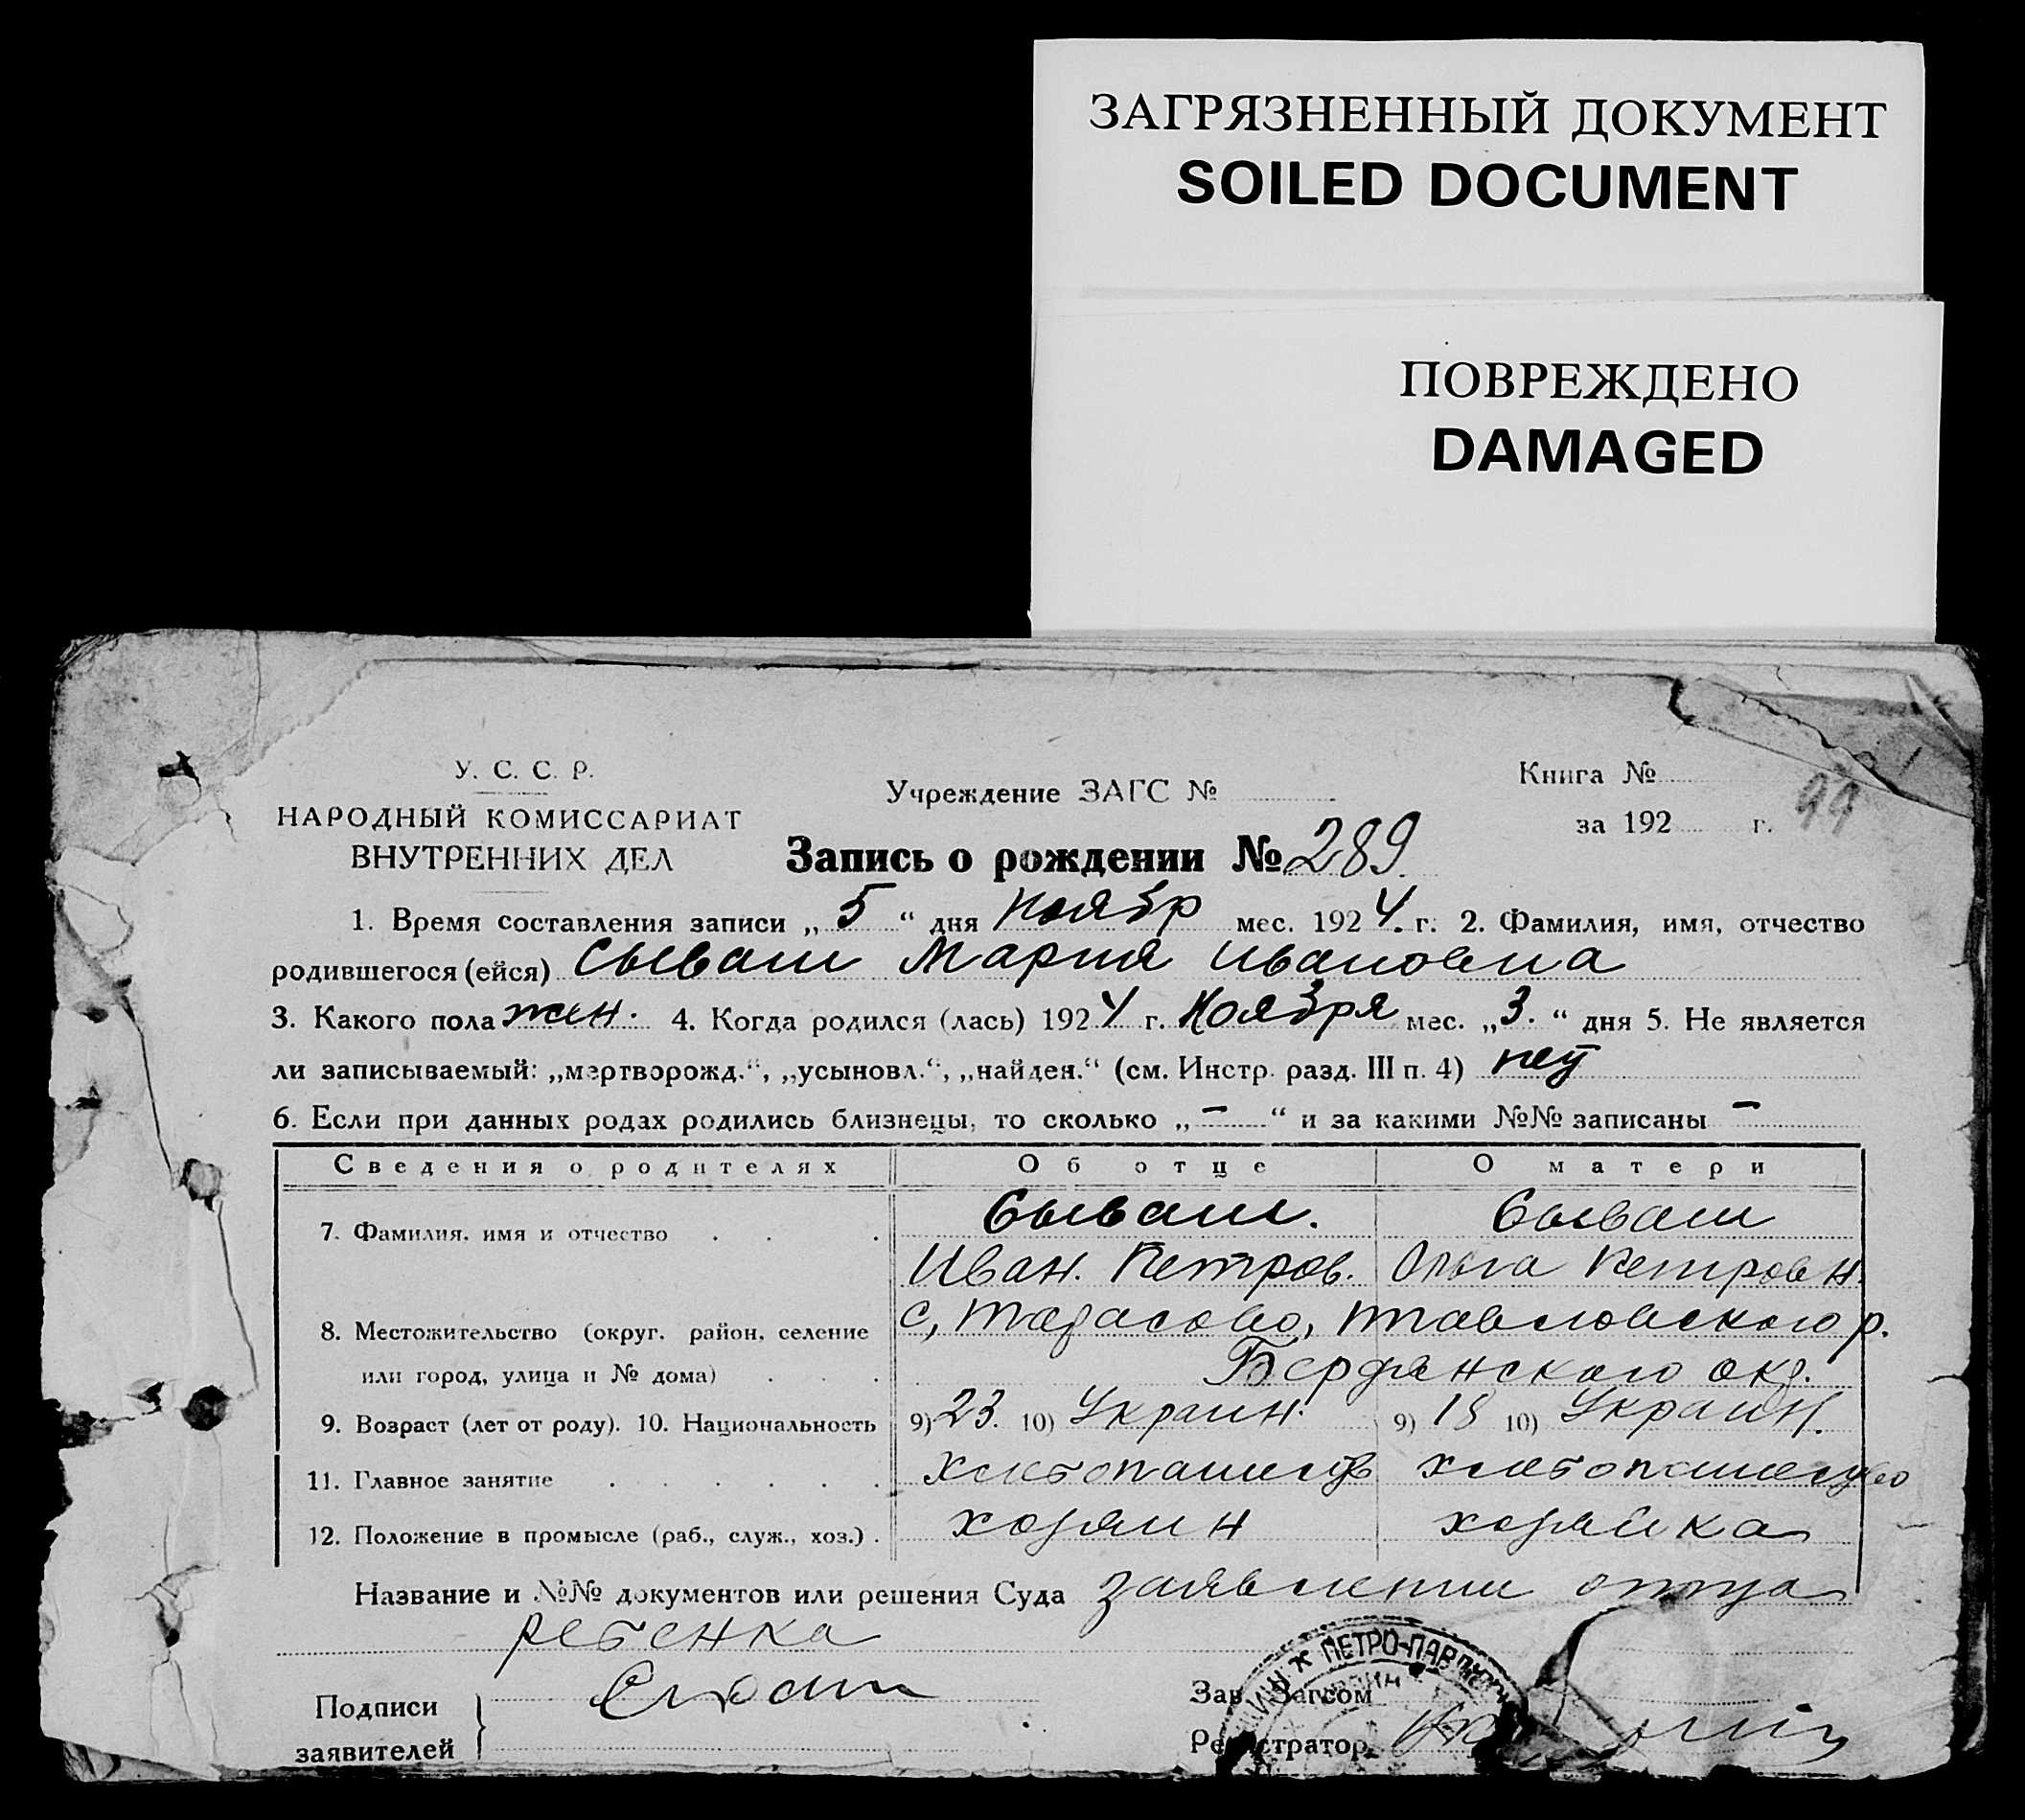 ЗАГРЯЗНЕННЫЙ ДОКУМЕНТ
SOILED DOCUMENT
ПОВРЕЖДЕНО
DAMAGED
У. С. С. Р.
НАРОДНЫЙ КОМИССАРИАТ
ВНУТРЕННИХ ДЕЛ
Учреждение ЗАГС №
Книга №
за 192 г.
99
Запись о рождении № 289.
1. Время составления записи „ 5 “ дня Ноябр мес. 1924. г. 2. Фамилия, имя, отчество
родившегося (ейся) Сываш Мария Ивановна
3. Какого пола жен. 4. Когда родился (лась) 1924 г. Ноября мес. „3. “ дня 5. Не является
ли записываемый: „мертворожд.“, „усыновл.“, „найден.“ (см. Инстр. разд. III п. 4) нет
6. Если при данных родах родились близнецы, то сколько „ – “ и за какими №№ записаны –
Сведения о родителях Об отце О матери
7. Фамилия, имя и отчество Сываш. Сываш
Иван. Петров. Ольга Петровн.
8. Местожительство (округ, район, селение с,
или город, улица и № дома) Бердянского окр.
9. Возраст (лет от роду). 10. Национальность 9) 23. 10) Украин. 9) 18 10) Украин.
11. Главное занятие хлебопашеств хлебопашество
12. Положение в промысле (раб., служ., хоз.) хозяин хозяйка
Название и №№ документов или решения Суда заявлении отца
ребенка
Подписи
заявителей
ПЕТРО-ПАВЛ
Зав. Загсом
Регистратор